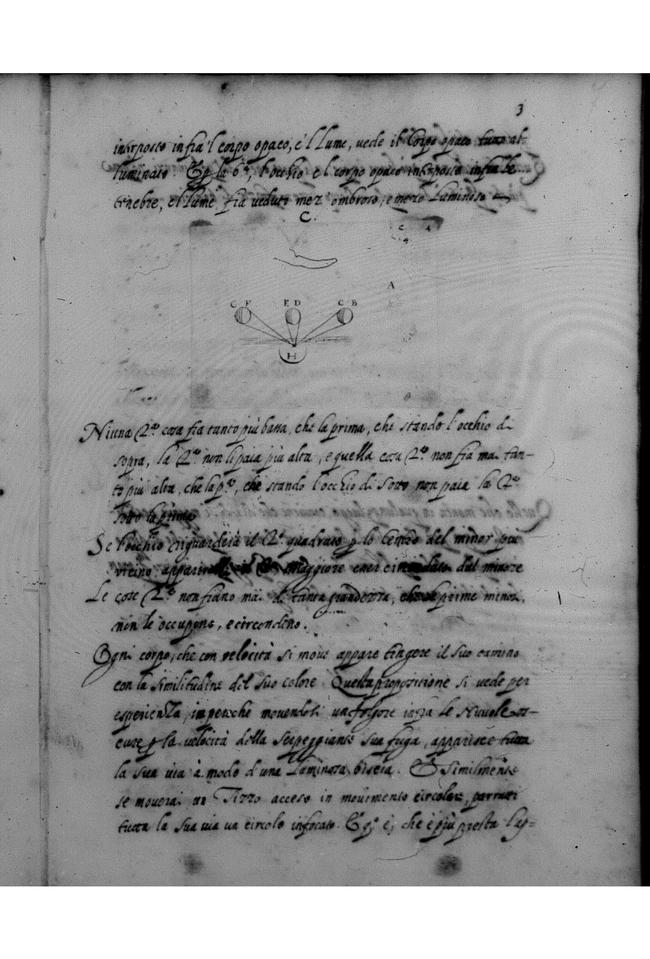 3
interposto infra 'l corpo opaco, e 'l lume, vede il Corpo opaco tutto al-
luminato Et p la 6ª, l'occhio e 'l corpo opaco interposto infra le
tenebre, e 'l lume fia veduto mez' ombroso, e mezo luminoso
C.
c 4
4
A
C F E D C B
H
Niuna 2ª cosa fia tanto più bassa, che la prima, che stando l'occhio di
sopra, la 2ª non li paia più alta, e quella cosa 2ª non fia mai tan-
to più alta, che la pª, che stando l'occhio di sotto non paia la 2ª
sotto la prima
Se l'occhio riguarderà il 2º quadrato p lo centro del minor più
vicino apparirà il maggiore esser circondato dal minore
Le cose 2ª non fiano mai di tanta grandezza, che le prime minori,
non le occupino, e circondino.
Ogni corpo, che con velocità si move appare tingere il suo camino
con la similitudine del suo colore. Questa proposizione si vede per
esperienza, imperoche movendosi un folgore infra le Nuvole os-
cure p la velocità della serpeggiante sua fuga, apparisce tutta
la sua via à modo d'una luminosa biscia. Et similmente
se moverai un Tizzo acceso in movimento circolar, parratti
tutta la sua via un circolo infocato. Et qº è, che è più presta l'ap-